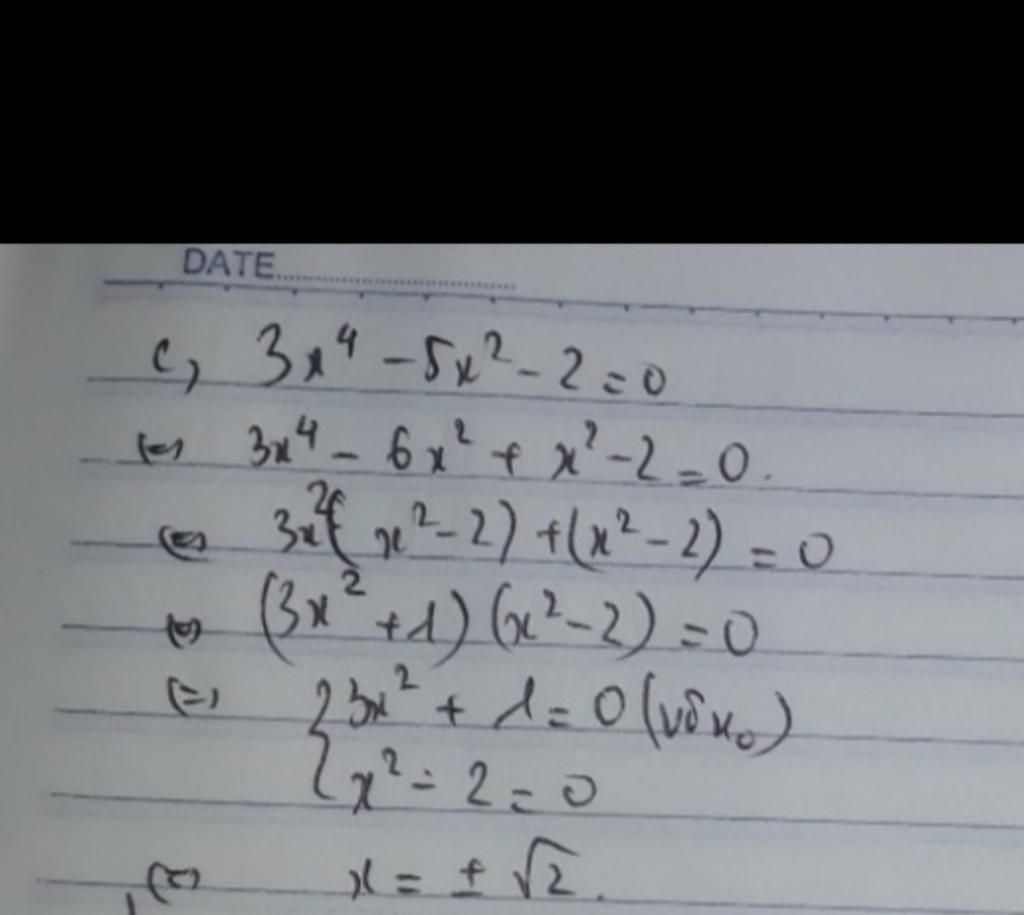 DATE
c, 3x⁴ - 5x² - 2 = 0
(=) 3x⁴ - 6x² + x² - 2 = 0.
(=) 3x²(x² - 2) + (x² - 2) = 0
(=) (3x² + 1)(x² - 2) = 0
(=) { 3x² + 1 = 0 (vô no)
x² - 2 = 0
(=) x = ± √2.